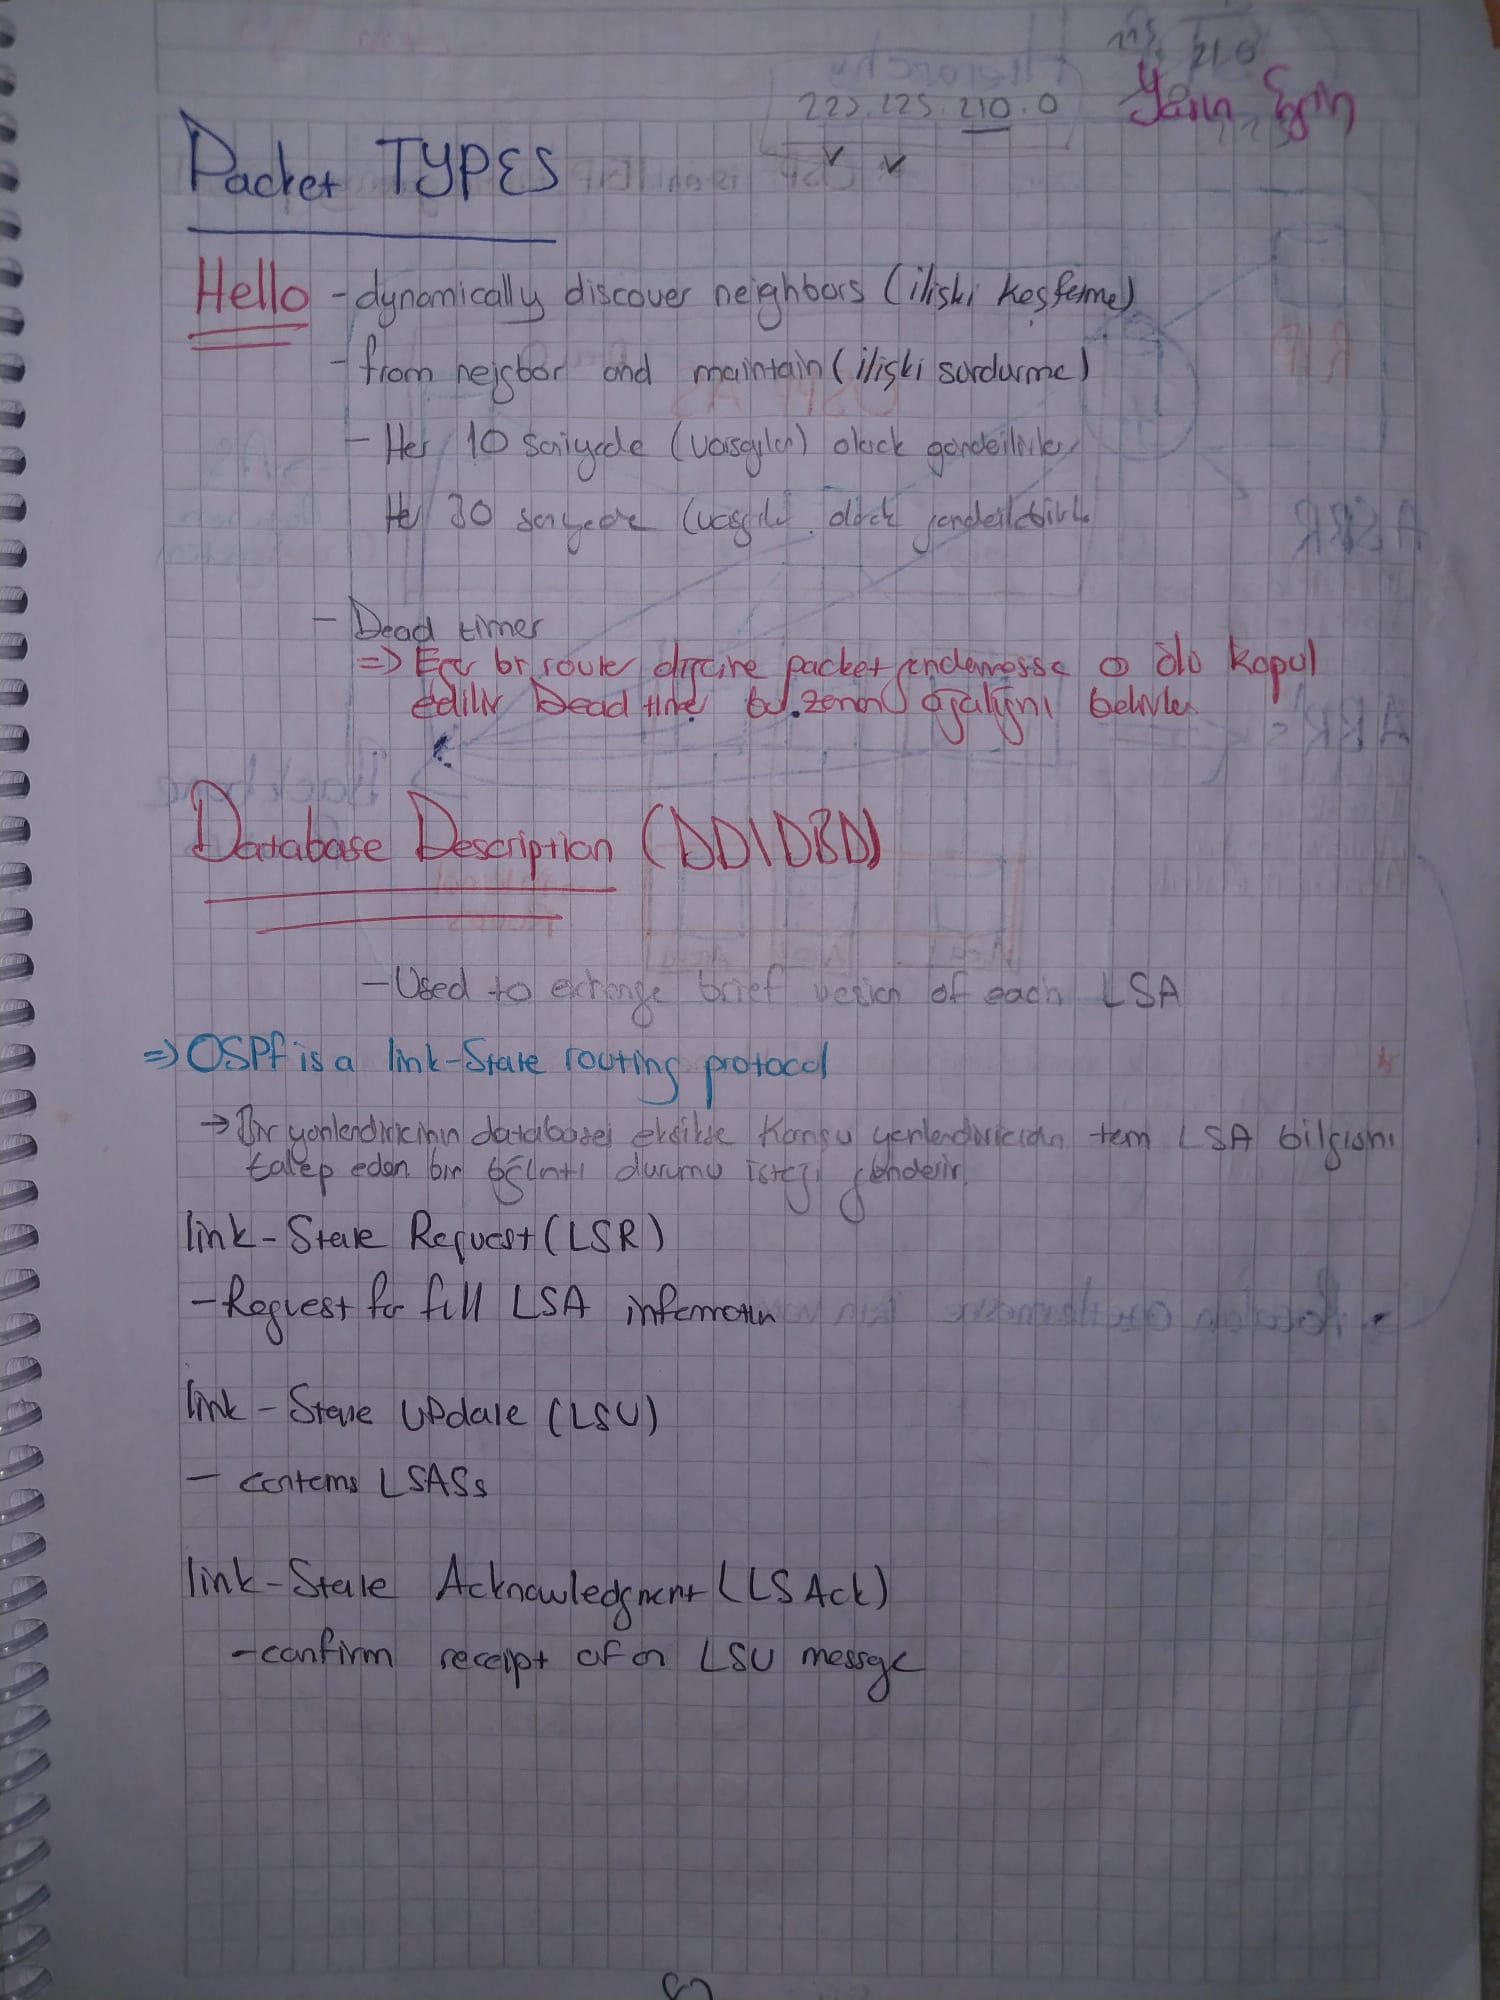 210
225.225.210.0
Packet TYPES
Hello - dynamically discover neighbors (ilişki keşfetme)
- from neigbor and maintain (ilişki surdurme)
- Her 10 saniyede (varsayılan) olarak gonderilirler
Her 30 saniyede (varsayılı olarak gonderilebilirle
- Dead timer
=> Eger bir router digerine packet gndermosse o ölü kapul
edilir Dead time bu zaman aralığını belirler
Database Description (DD\DBD)
- Used to exchange brief version of each LSA
=> OSPf is a link-State routing protocol
-> Bir yonlendiricinin databasei eksikse Komşu yonlendiriciden tam LSA bilgisini
talep eden bir bağlantı durumu isteği gönderir
link-State Request (LSR)
- Request for full LSA information
link - State UPdate (LSU)
- contains LSASs
link-State Acknowledgment (LS Ack)
- confirm receipt of a LSU message